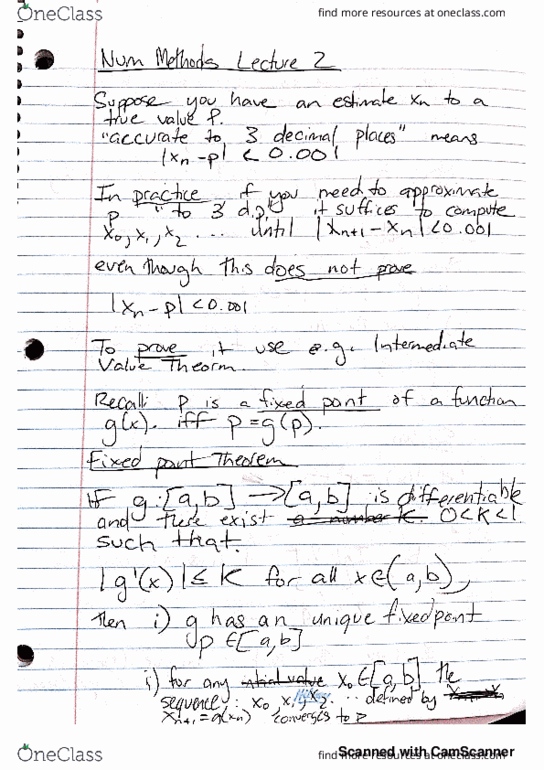 OneClass
find more resources at oneclass.com
Num Methods Lecture 2
Suppose you have an estimate xn to a
true value P.
"accurate to 3 decimal places" means
|xn - p| < 0.001
In practice, if you need to approximate
p "to 3 d.p" it suffices to compute
x0, x1, x2 ... until |xn+1 - xn| < 0.001
even though this does not prove
|xn - p| < 0.001
To prove it use e.g. Intermediate
Value Theorm.
Recall: P is a fixed point of a function
g(x). iff p = g(p).
Fixed point Theorem
If g: [a,b] → [a,b] is differentiable
and there exist a number K 0<K<1
such that.
|g'(x)| ≤ K for all x∈(a,b),
then i) g has an unique fixed point
p ∈ [a,b]
i) for any intial value x0 ∈ [a,b] the
sequency: x0, x1, x2 ... defined by
xn+1 = g(xn) converges to p
OneClass
find more resources at oneclass.com
Scanned with CamScanner